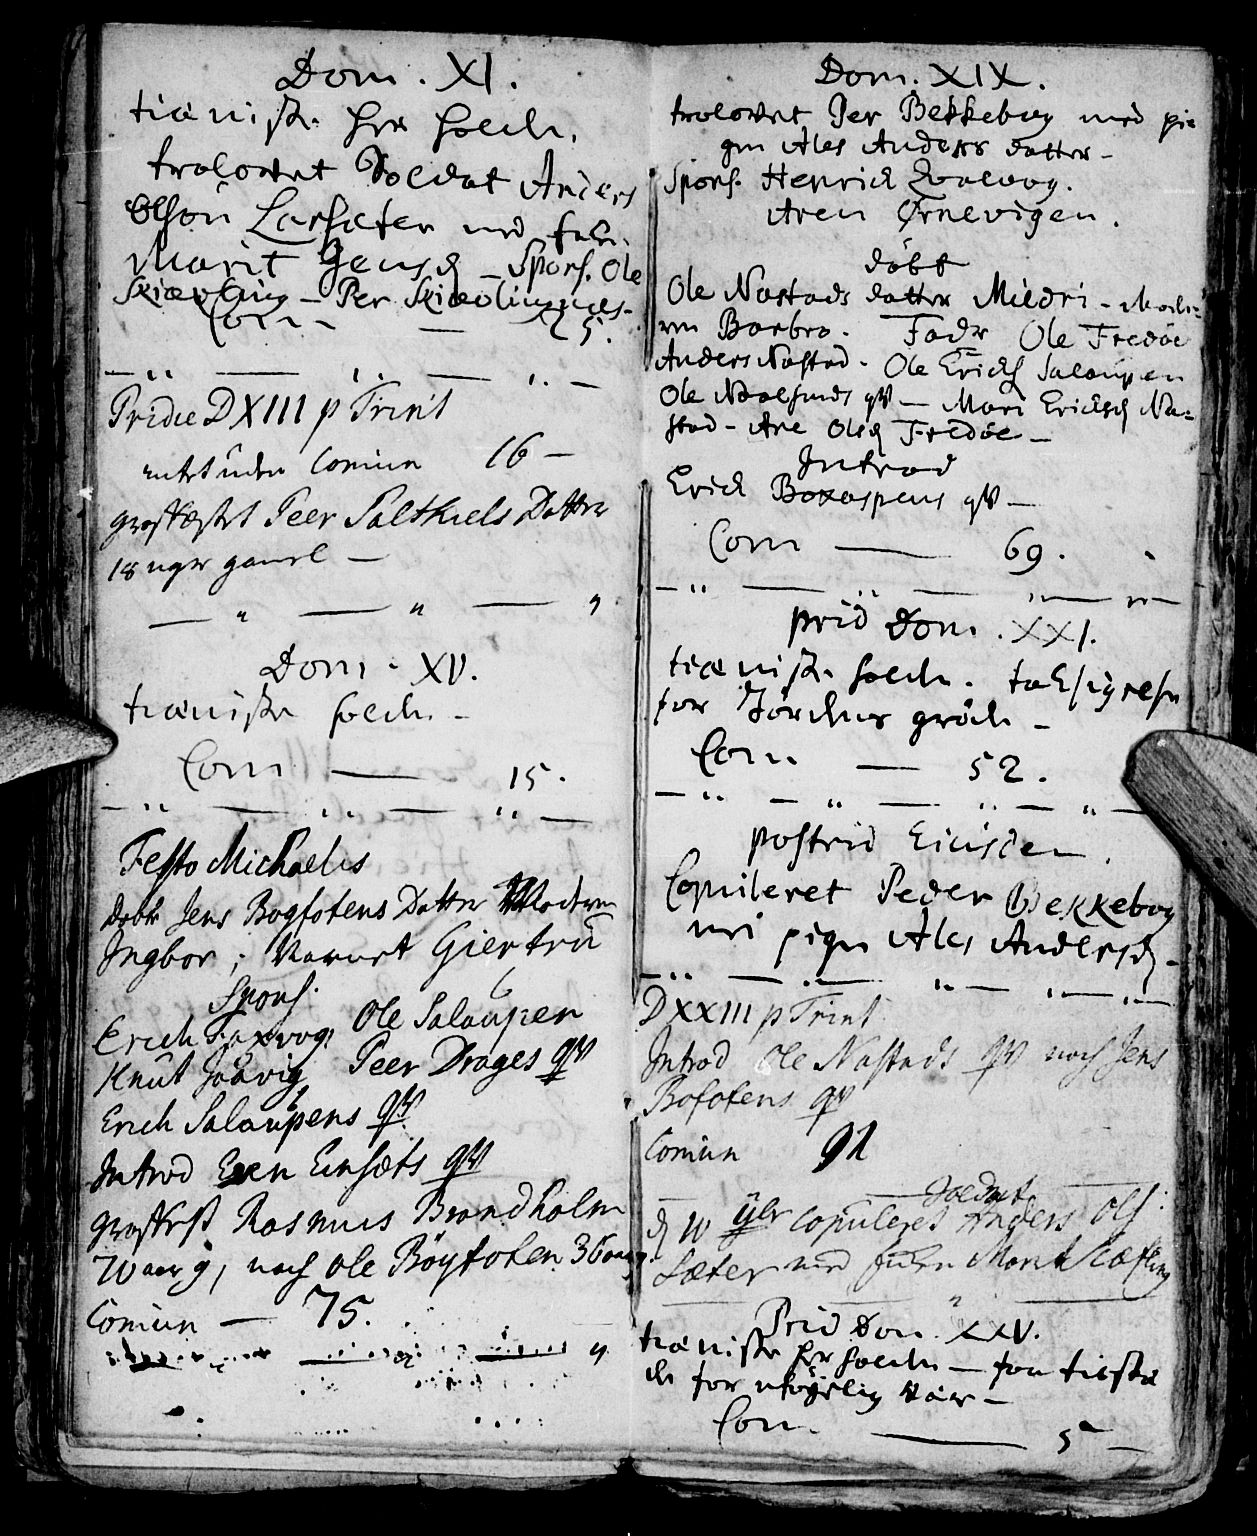 Dom. XI.
tiæniste her holdt.
trolovet Soldat Anders
Olsøn Larsæter med
Marit Jens D. – Spons. Ole
Skiævling – Per Skiævlingnes –
Com. — 25.
Pridie D XIII p Trinit
Comun 16 –
grafæstet Peer Salthiels Datter
18 uger gaml —
Dom. XV.
tiæniste holdt. –
Com — 15.
Festo Michaelis
døbt Jens Bogfotens Datter Moderen
Ingbor; Barnet Giertru
Spons.
Erich Ole Salaupen
Knut Peer Drages qv
Erich Salaupens qv
Introd Even Einsæts qv
grafæst Rasmus Brandholm
70 aar g, noch Ole Böyfoten 36 aar g
Comun — 75.
Dom. XIX.
trolovet Per Bekkebog med pi=
gen Ales Anders datter –
Spons. Henrich Qvalvog.
Aren Ørnevigen.
döbt
Ole Nastads datter Mildri – Mode=
ren Barbro. Fadr Ole Fredøe
Anders Nastad. Ole Erichs Salaupen
Ole qv — Mari Erichs D Na=
stad – Ane Ols D Fredøe –
Introd
Erich Boxaspens qv –
Com — 69.
prid Dom. XXI.
tiæniste holdt. taksigelse
for Jordens gröde –
Com. — 52.
postrid Eiusdem.
Copuleret Peder Bekkebog
med pigen Ales Anders D. –
D XXIII p Trint
Introd Ole Nastads qv noch Jens
Bofotens qv
Comun 91
Soldat
d 10 9br Copuleret Anders Ols.
Sæter med Marit Skæfling
Prid Dom. XXV.
tiæniste her holdt —
for Vær –
Com. — 5 –